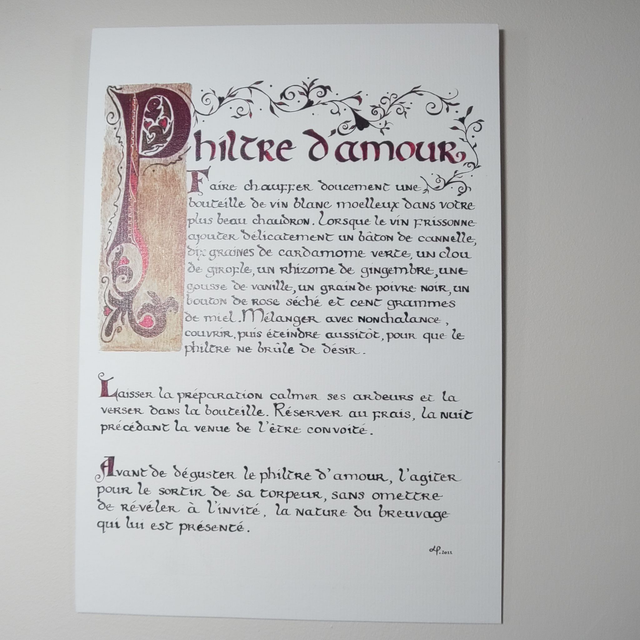 Philtre d'amour
Faire chauffer doucement une
bouteille de vin blanc moelleux dans votre
plus beau chaudron. Lorsque le vin frissonne
ajouter délicatement un bâton de cannelle,
dix graines de cardamome verte, un clou
de girofle, un rhizome de gingembre, une
gousse de vanille, un grain de poivre noir, un
bouton de rose séché et cent grammes
de miel. Mélanger avec nonchalance,
couvrir, puis éteindre aussitôt, pour que le
philtre ne brûle de désir.
Laisser la préparation calmer ses ardeurs et la
verser dans la bouteille. Réserver au frais, la nuit
précédant la venue de l'être convoité.
Avant de déguster le philtre d'amour, l'agiter
pour le sortir de sa torpeur, sans omettre
de révéler à l'invité, la nature du breuvage
qui lui est présenté.